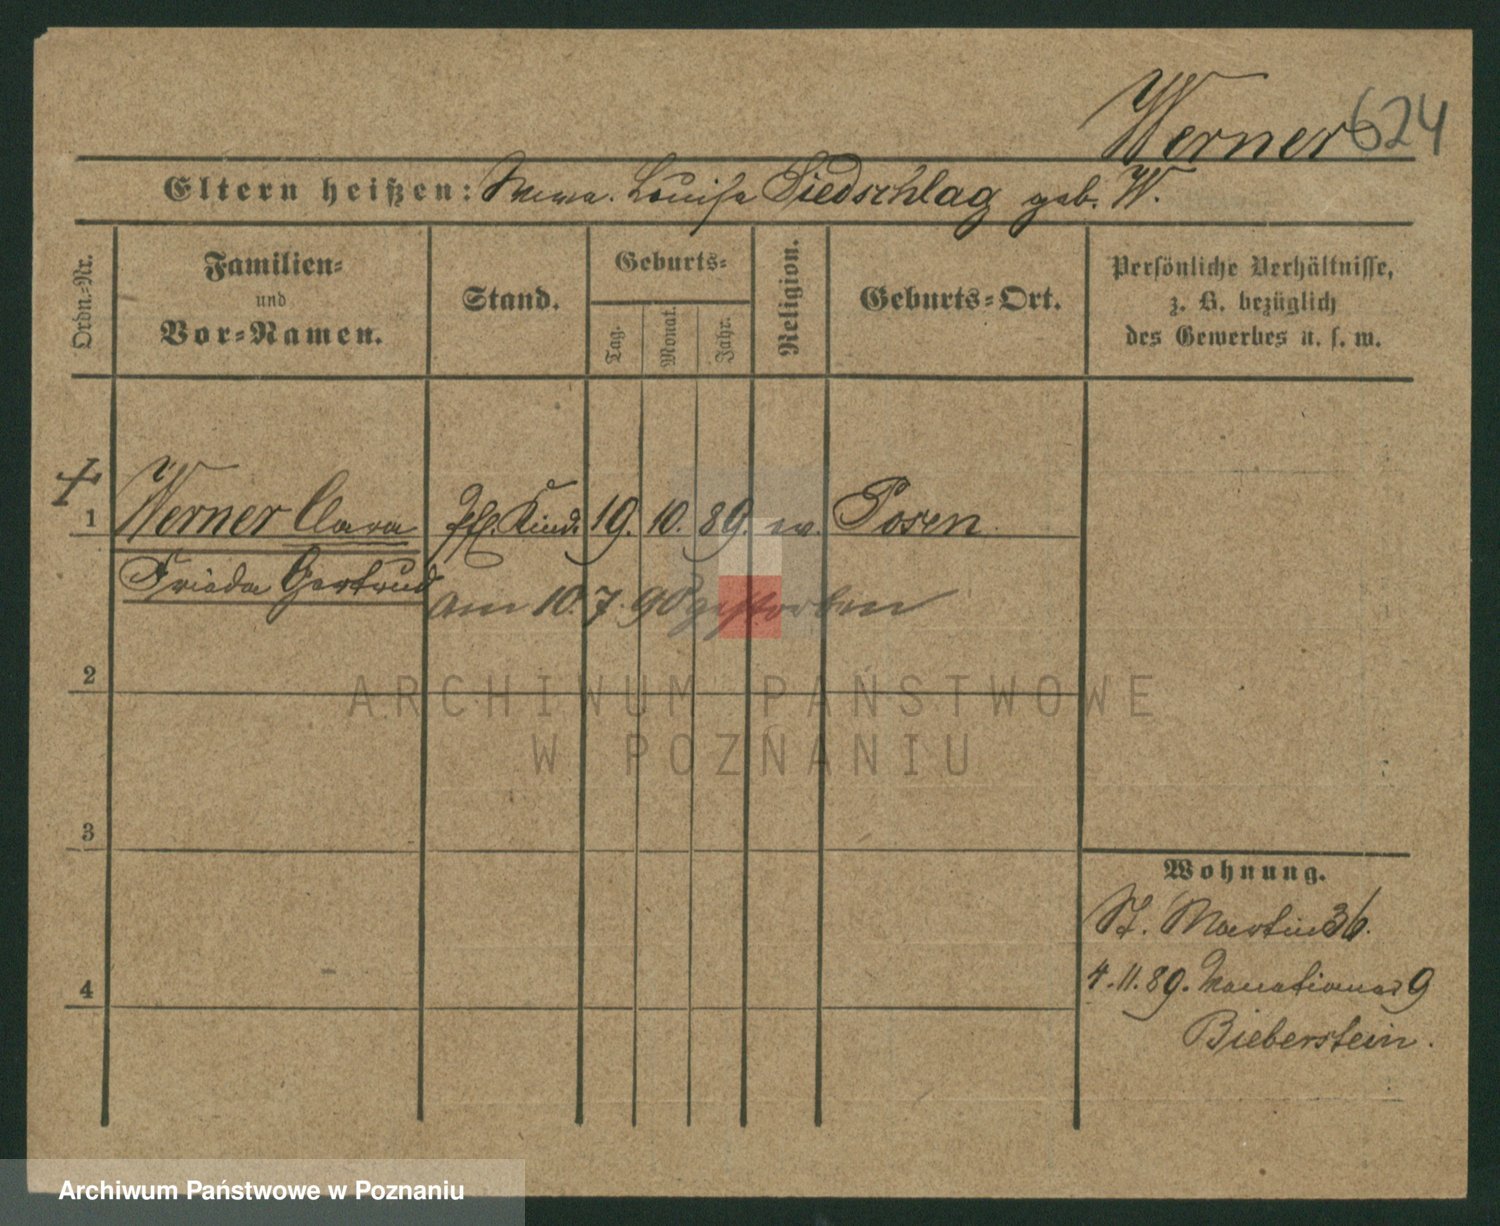 Werner 624
Eltern heißen: Wwe. Louise Siedschlag geb. W.
Ordn.-Nr.
Familien-
und
Vor-Namen.
Stand.
Geburts-
Tag.
Monat.
Jahr.
Religion.
Geburts-Ort.
Persönliche Verhältnisse,
z. B. bezüglich
des Gewerbes u. s. w.
1 Werner Clara Kind 19. 10. 89. ev. Posen
Frieda Gertrud
am 10. 7. 90 gestorben
2
3
4
Wohnung.
St. Martin 36.
4. 11. 89. 9
Bieberstein.
ARCHIWUM PAŃSTWOWE
W POZNANIU
Archiwum Państwowe w Poznaniu